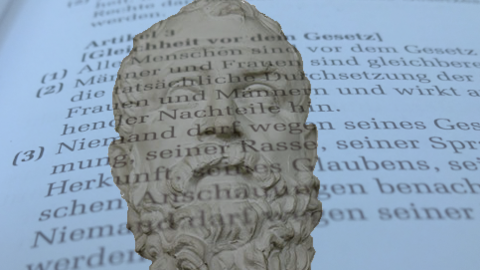 Rechte dar
werden.
Artikel 3
[Gleichheit vor dem Gesetz]
(1) Alle Menschen sind vor dem Gesetz
(2) Männer und Frauen sind gleichbere
die tatsächliche Durchsetzung der
Frauen und Männern und wirkt a
hender Nachteile hin.
(3) Niemand darf wegen seines Ges
mung, seiner Rasse, seiner Spra
Herkunft, seines Glaubens, sei
schen Anschauungen benach
Niemand darf wegen seiner
werden.